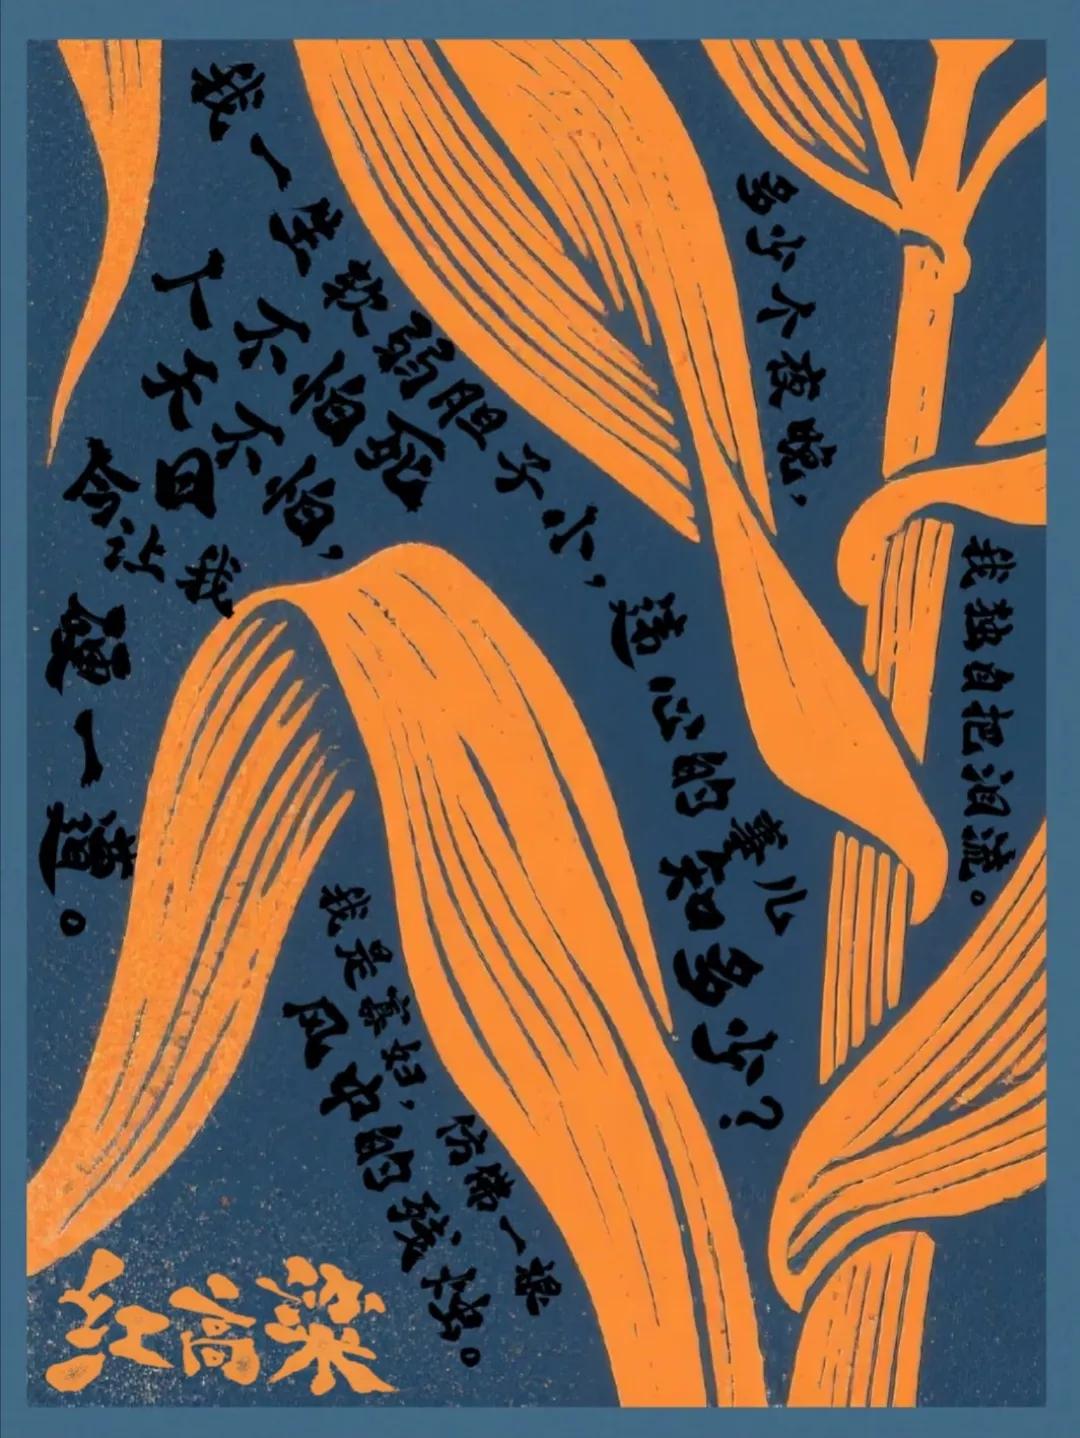 我一生软弱胆子小，违心的事儿
知多少？
人不怕死
天不怕，
今日让我
硬一道。
多少个夜晚，
我独自把泪流。
我是寡妇，仿佛一根
风中的残烛。
红高粱